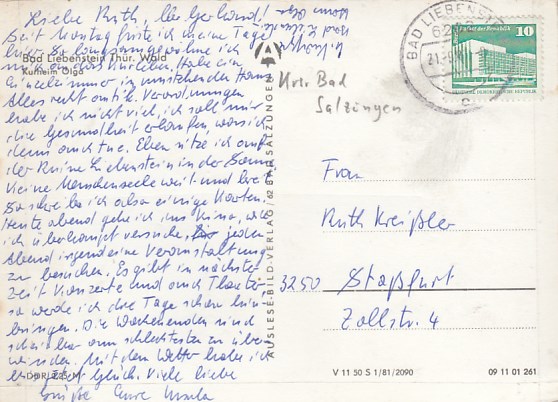 Liebe Ruth, lieber Gerhard!
Seit Montag friste ich meine Tage
hier. So langsam gewöhne ich
mich an das Kurleben. Habe ein
Einzelzimmer in umstehendem Haus
Alles recht antik. Verordnungen
habe ich nicht viel, ich soll mir
die Gesundheit erlaufen, was ich
denn auch tue. Eben sitze ich auf
der Ruine Liebenstein in der Sonne
Keine Menschenseele weit und breit
So schreibe ich also einige Karten.
Heute abend gehe ich ins Kino, wie
ich überhaupt versuche, jeden
Abend irgend eine Veranstaltung
zu besuchen. Es gibt in nächster
Zeit Konzerte und auch Theater,
so werde ich die Tage schon hin-
bringen. Die Wochenenden sind
scheinbar am schlechtesten zu über-
winden. Mit dem Wetter habe ich
Glück. Viele liebe
Grüße Eure Ursula
Bad Liebenstein Thür. Wald
Kurheim Olga
AUSLESE-BILD-VERLAG / 62 BAD SALZUNGEN
BAD LIEBENSTEIN
10
Krs. Bad
Salzungen
Frau
Ruth Kreißler
3250 Staßfurt
Zollstr. 4
V 11 50 S 1/81/2090
09 11 01 261